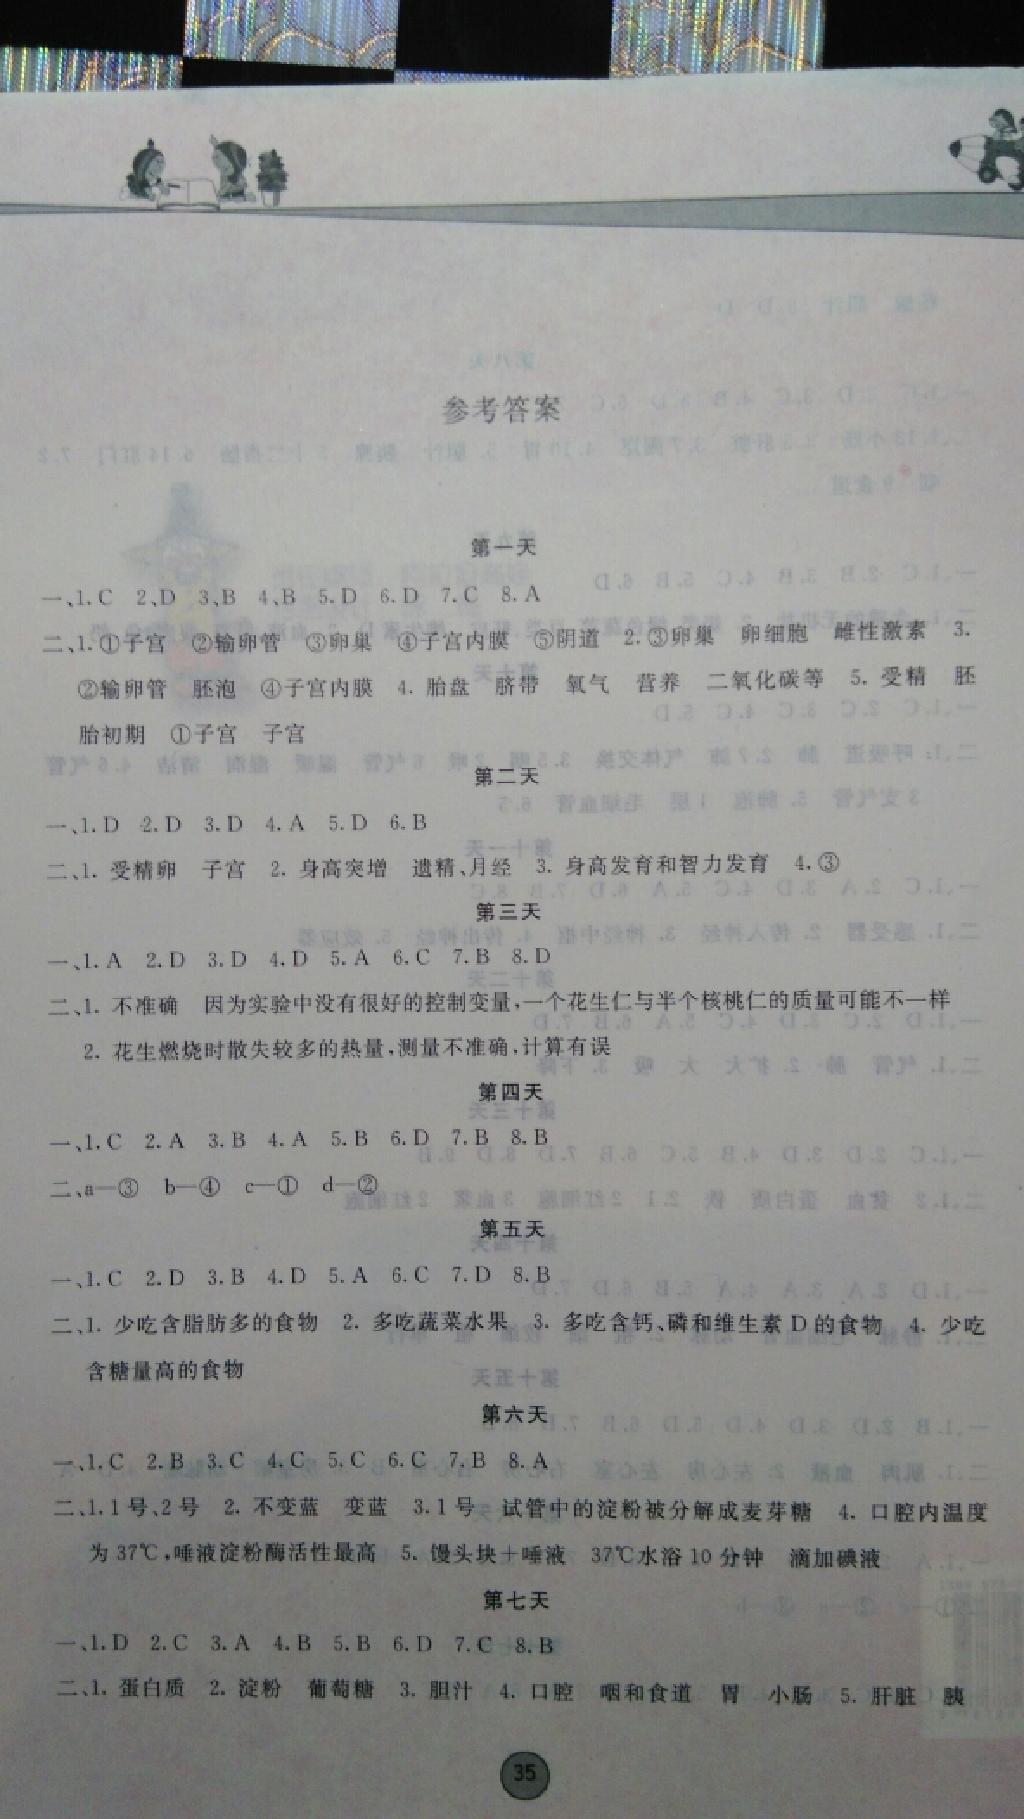 参考答案
第一天
一、1. C 2. D 3. B 4. B 5. D 6. D 7. C 8. A
二、1. ①子宫 ②输卵管 ③卵巢 ④子宫内膜 ⑤阴道 2. ③卵巢 卵细胞 雌性激素 3.
②输卵管 胚泡 ④子宫内膜 4. 胎盘 脐带 氧气 营养 二氧化碳等 5. 受精 胚
胎初期 ①子宫 子宫
第二天
一、1. D 2. D 3. D 4. A 5. D 6. B
二、1. 受精卵 子宫 2. 身高突增 遗精、月经 3. 身高发育和智力发育 4. ③
第三天
一、1. A 2. D 3. D 4. D 5. A 6. C 7. B 8. D
二、1. 不准确 因为实验中没有很好的控制变量,一个花生仁与半个核桃仁的质量可能不一样
2. 花生燃烧时散失较多的热量,测量不准确,计算有误
第四天
一、1. C 2. A 3. B 4. A 5. B 6. D 7. B 8. B
二、a—③ b—④ c—① d—②
第五天
一、1. C 2. D 3. B 4. D 5. A 6. C 7. D 8. B
二、1. 少吃含脂肪多的食物 2. 多吃蔬菜水果 3. 多吃含钙、磷和维生素 D 的食物 4. 少吃
含糖量高的食物
第六天
一、1. C 2. B 3. C 4. C 5. C 6. C 7. B 8. A
二、1. 1 号、2 号 2. 不变蓝 变蓝 3. 1 号 试管中的淀粉被分解成麦芽糖 4. 口腔内温度
为 37℃,唾液淀粉酶活性最高 5. 馒头块+唾液 37℃水浴 10 分钟 滴加碘液
第七天
一、1. D 2. C 3. A 4. B 5. B 6. D 7. C 8. B
二、1. 蛋白质 2. 淀粉 葡萄糖 3. 胆汁 4. 口腔 咽和食道 胃 小肠 5. 肝脏 胰
35